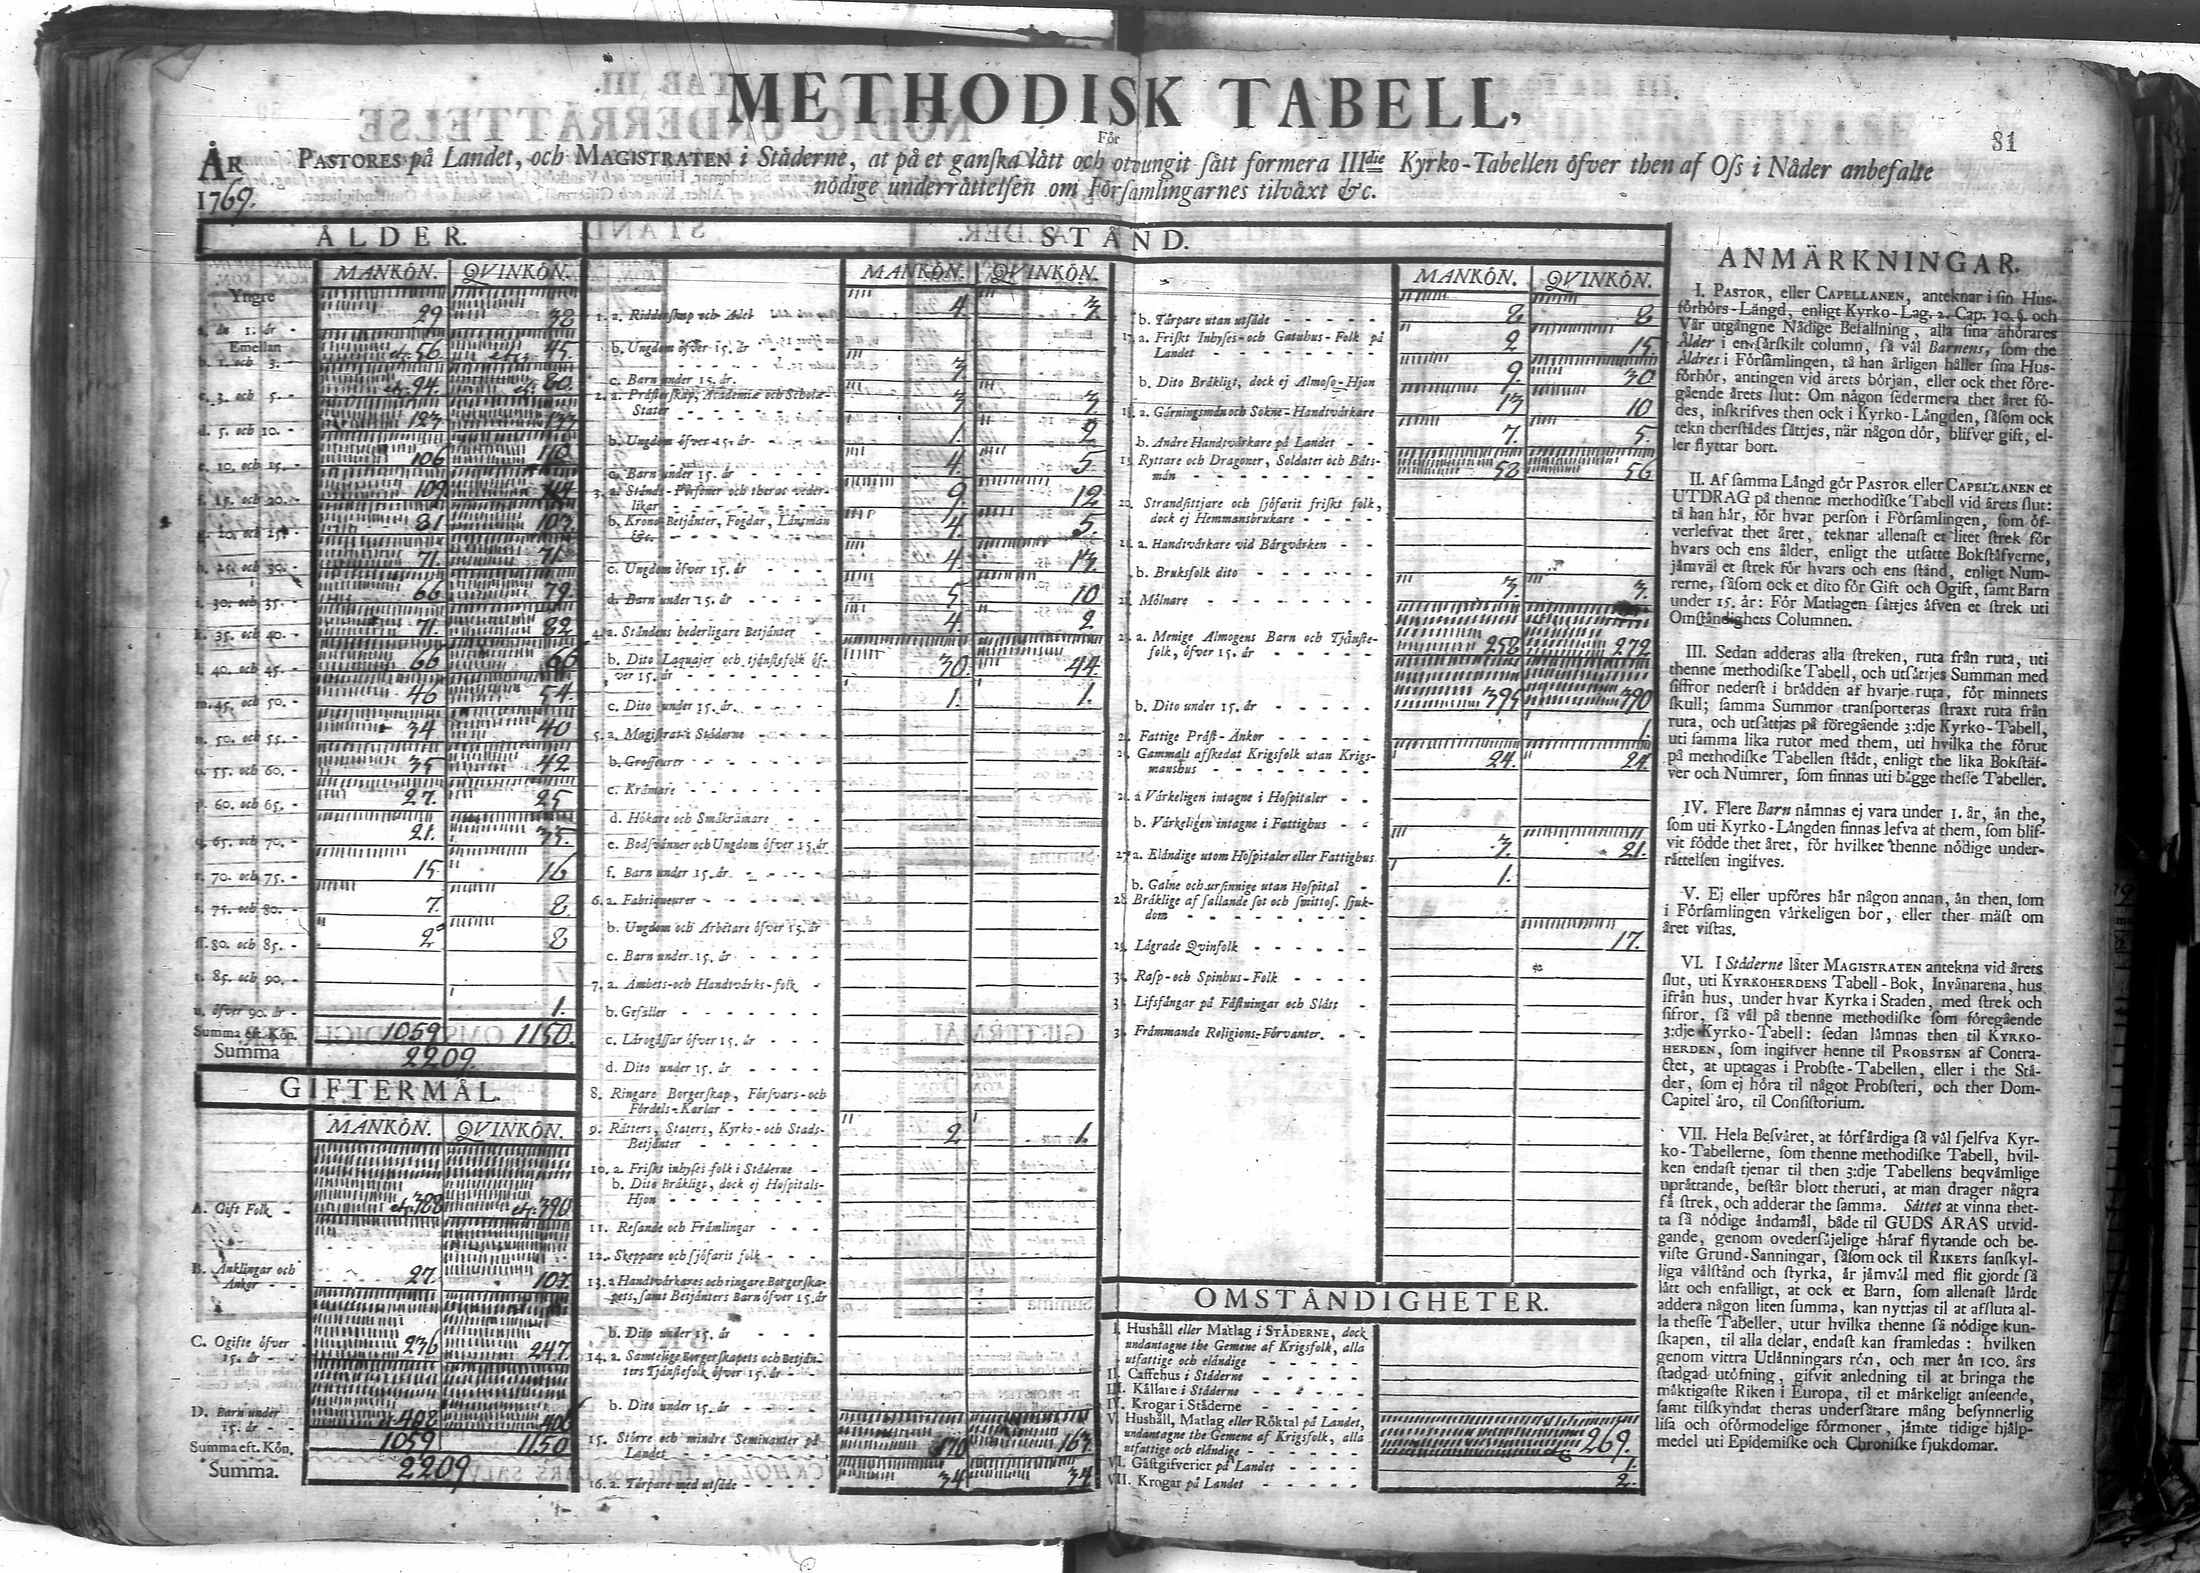 METHODISK TABELL,
För
81
ÅR
1769.
PASTORES på Landet, och MAGISTRATEN i Städerne, at på et ganska lått och otvungit sått formera IIIdie Kyrko-Tabellen öfver then af Oss i Nåder anbefalte
nödige underråttelsen om Församlingarnes tilvåxt &c.
ÅLDER.
MANKÖN. QVINKÖN.
Yngre
a. ån 1. år - 29 38
Emellan
b. 1. och 3. etc. 56 etc. 45.
c. 3. och 5. - etc. 94. etc. 80.
d. 5. och 10. - 123 133
e. 10. och 15. - 106 110
f. 15. och 20. - 109 114
g. 20. och 25. 81 103.
h. 25. och 30. - 71. 71.
i. 30. och 35. - 66 79.
k. 35. och 40. - 71. 82
l. 40. och 45. - 66 66
m. 45. och 50. - 46 54.
n. 50. och 55. - 34 40
o. 55. och 60. - 35 42
p. 60. och 65. - 27. 25
q. 65. och 70. - 21. 35.
r. 70. och 75. - 15 16
s. 75. och 80. - 7. 8
ss. 80. och 85. - 2 8
t. 85. och 90. -
u. öfver 90. år - 1.
Summa eft. Kön. 1059 1150.
Summa 2209.
GIFTERMÅL.
MANKÖN. QVINKÖN.
A. Gift Folk - etc. 388 etc. 390
B. Änklingar och
Änkor - - 27. 107.
C. Ogifte öfver
15. år - - 236 247.
D. Barn under
15. år - - 408 406
Summa eft. Kön. 1059 1150
Summa. 2209
STÅND.
MANKÖN. QVINKÖN.
1. a. Ridderskap och Adel 4. 3.
b. Ungdom öfver 15. år - - - -
c. Barn under 15. år. 3.
2. a. Prästerskap, Academiæ och Scholæ-
Stater - - - - - 3 3.
b. Ungdom öfver 15. år - - - 1. 2
c. Barn under 15. år - - - - 4. 5
3. a. Stånds-Personer och theras veder-
likar - - - - - - 9. 12
b. Krono-Betjånter, Fogdar, Länsmån
&c. - - - - - - 4. 5
c. Ungdom öfver 15. år - - - 4. 13.
d. Barn under 15. år - - - - 5 10
4. a. Ståndens hederligare Betjånter - 4 2
b. Dito Laquajer och tjänstefolk öf-
ver 15. år - - - - - - 30. 44.
c. Dito under 15. år. - - - - 1. 1.
5. a. Magistrat i Städerne - - -
b. Grosseurer - - - - - -
c. Krämare - - - - - -
d. Hökare och Småkrämare - -
e. Bodsvänner och Ungdom öfver 15. år
f. Barn under 15. år - - - -
6. a. Fabriqueurer - - - - -
b. Ungdom och Arbetare öfver 15. år
c. Barn under 15. år - - - -
7. a. Åmbets-och Handtvårks-folk -
b. Gesäller - - - - - -
c. Lärogåssar öfver 15. år - - -
d. Dito under 15. år - - - -
8. Ringare Borgerskap, Försvars-och
Fördels-Karlar - - - - -
9. Råtters, Staters, Kyrko-och Stads-
Betjänter - - - - - - 2 1.
10. a. Friskt inhyses folk i Städerne -
b. Dito Bråkligt, dock ej Hospitals-
Hjon - - - - - - -
11. Resande och Främlingar - - -
12. Skeppare och sjöfarit folk - - -
13. a Handtvårkares och ringare Borgerska-
pets, samt Betjånters Barn öfver 15. år
b. Dito under 15. år - - -
14. a. Samtelige Borgerskapets och Betjån-
ters Tjånstefolk öfver 15. år - -
b. Dito under 15. år - - - -
15. Större och mindre Hemmans
Landet - - - - - - 170 163.
16. a. Tårpare med utsåde - - - 34 34
MANKÖN. QVINKÖN.
b. Tårpare utan utsåde - - - - 8 8
17. a. Friskt Inhyses-och Gatuhus-Folk på
Landet - - - - - - - 2 15
b. Dito Bråkligt, dock ej Almoso-Hjon 9. 30
18. a. Gårningsmån och Sokne-Handtvårkare 13 10
b. Andre Handtvårkare på Landet - - 7. 5.
19. Ryttare och Dragoner, Soldater och Båts-
mån - - - - - - - 58 56
20. Strandsittjare och sjöfarit friskt folk,
dock ej Hemmansbrukare - - - -
21. a. Handtvårkare vid Bårgvårken - -
b. Bruksfolk dito - - - - - -
22. Mölnare - - - - - - - 3. 3.
23. a. Menige Almogens Barn och Tjånste-
folk, öfver 15. år - - - - - 258 272
b. Dito under 15. år - - - - - 395 390
24. Fattige Präst-Änkor - - - - - 1.
25. Gammalt afskedat Krigsfolk utan Krigs-
manshus - - - - - - - 24. 24.
26. a Vårkeligen intagne i Hospitaler - -
b. Vårkeligen intagne i Fattighus - -
27. a. Elåndige utom Hospitaler eller Fattighus 3. 21.
b. Galne och ursinnige utan Hospital - 1.
28. Bråklige af fallande sot och smittos. sjuk-
dom - - - - - - - -
29. Lågrade Qvinfolk - - - - - - 17.
30. Rasp-och Spinhus-Folk - - - -
31. Lifsfångar på Fåstningar och Slått - -
32. Fråmmande Religions-Förvanter. - -
OMSTÅNDIGHETER.
I. Hushåll eller Matlag i STÅDERNE, dock
undantagne the Gemene af Krigsfolk, alla
utfattige och elåndige - - - - -
II. Caffehus i Städerne - - - - -
III. Kållare i Städerne - - - - -
IV. Krogar i Städerne - - - - -
V. Hushåll, Matlag eller Röktal på Landet,
undantagne the Gemene af Krigsfolk, alla
utfattige och elåndige - - - - - 269.
VI. Gåstgifverier på Landet - - - - 1.
VII. Krogar på Landet - - - - - 2.
ANMÄRKNINGAR.
I. PASTOR, eller CAPELLANEN, anteknar i sin Hus-
förhörs-Långd, enligt Kyrko-Lag. 2. Cap. 10. §. och
Vår utgångne Nådige Befallning, alla sina åhörares
Ålder i en sårskilt column, så vål Barnens, som the
Äldres i Församlingen, tå han årligen håller sina Hus-
förhör, antingen vid årets början, eller ock thet före-
gående årets slut: Om någon sedermera thet året fö-
des, inskrifves then ock i Kyrko-Långden, såsom ock
tekn therstådes såttjes, når någon dör, blifver gift, el-
ler flyttar bort.
II. Af samma Långd gör PASTOR eller CAPELLANEN et
UTDRAG på thenne methodiske Tabell vid årets slut:
tå han hår, för hvar person i Församlingen, som öf-
verlefvat thet året, teknar allenast et litet strek för
hvars och ens ålder, enligt the utsatte Bokståfverne,
jämväl et strek för hvars och ens stånd, enligt Num-
rerne, såsom ock et dito för Gift och Ogift, samt Barn
under 15. år: För Matlagen såttjes åfven et strek uti
Omståndighets Columnen.
III. Sedan adderas alla streken, ruta från ruta, uti
thenne methodiske Tabell, och utsåttjes Summan med
siffror nederst i brådden af hvarje ruta, för minnets
skull; samma Summor transporteras straxt ruta från
ruta, och utsåttjas på föregående 3:dje Kyrko-Tabell,
uti samma lika rutor med them, uti hvilka the förut
på methodiske Tabellen städt, enligt the lika Bokståf-
ver och Numrer, som finnas uti bågge thesse Tabeller.
IV. Flere Barn nåmnas ej vara under 1. år, ån the,
som uti Kyrko-Långden finnas lefva at them, som blif-
vit födde thet året, för hvilket thenne nödige under-
råttelsen ingifves.
V. Ej eller upföres hår någon annan, ån then, som
i Församlingen vårkeligen bor, eller ther måst om
året vistas.
VI. I Städerne låter MAGISTRATEN antekna vid årets
slut, uti KYRKOHERDENS Tabell-Bok, Invånarena, hus
ifrån hus, under hvar Kyrka i Staden, med strek och
sifror, så vål på thenne methodiske som föregående
3:dje Kyrko-Tabell: sedan låmnas then til KYRKO-
HERDEN, som ingifver henne til PROBSTEN af Contra-
ctet, at uptagas i Probste-Tabellen, eller i the Stå-
der, som ej höra til något Probsteri, och ther Dom-
Capitel åro, til Consistorium.
VII. Hela Besvåret, at förfårdiga så vål sjelfva Kyr-
ko-Tabellerne, som thenne methodiske Tabell, hvil-
ken endast tjenar til then 3:dje Tabellens beqvåmlige
upråttande, består blott theruti, at man drager några
få strek, och adderar the samma. Såttet at vinna thet-
ta så nödige åndamål, både til GUDS ÄRAS utvid-
gande, genom ovedersåjelige håraf flytande och be-
viste Grund-Sanningar, såsom ock til RIKETS sanskyl-
liga vålstånd och styrka, år jåmvål med flit gjordt så
lått och enfalligt, at ock et Barn, som allenast lårdt
addera någon liten summa, kan nyttjas til at afsluta al-
la thesse Tabeller, utur hvilka thenne så nödige kun-
skapen, til alla delar, endast kan framledas: hvilken
genom vittra Utlånningars rön, och mer ån 100. års
stadgad utöfning, gifvit anledning til at bringa the
måktigaste Riken i Europa, til et mårkeligt anseende,
samt tilskyndat theras undersåtare mång besynnerlig
lisa och oförmodelige förmoner, jämte tidige hjålp-
medel uti Epidemiske och Chroniske sjukdomar.